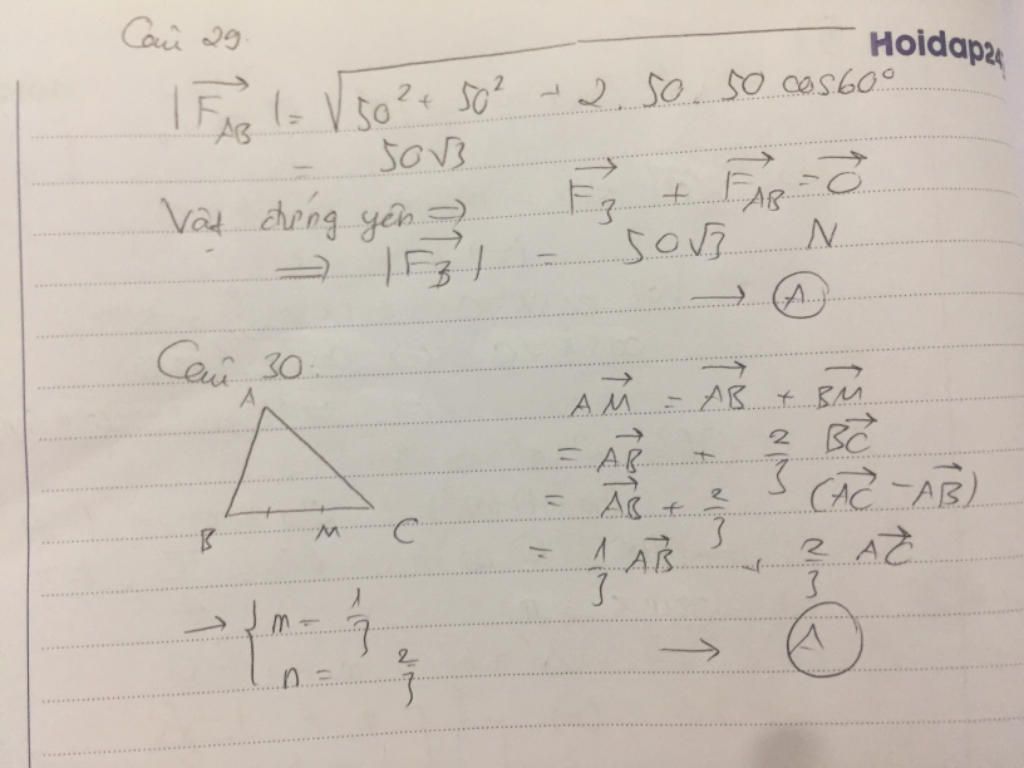 Câu 29.
Hoidap24
|F⃗_AB| = √(50² + 50² + 2.50.50 cos60°)
= 50√3
Vật đứng yên ⇒ F⃗_3 + F⃗_AB = 0⃗
⇒ |F⃗_3| = 50√3 N
→ A
Câu 30.
A
B M C
AM⃗ = AB⃗ + BM⃗
= AB⃗ + 2/3 BC⃗
= AB⃗ + 2/3 (AC⃗ - AB⃗)
= 1/3 AB⃗ + 2/3 AC⃗
→ { m = 1/3
n = 2/3
→ A